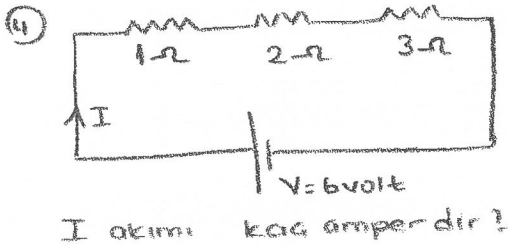 4
1Ω 2Ω 3Ω
I
V=6volt
I akımı kaç amperdir?